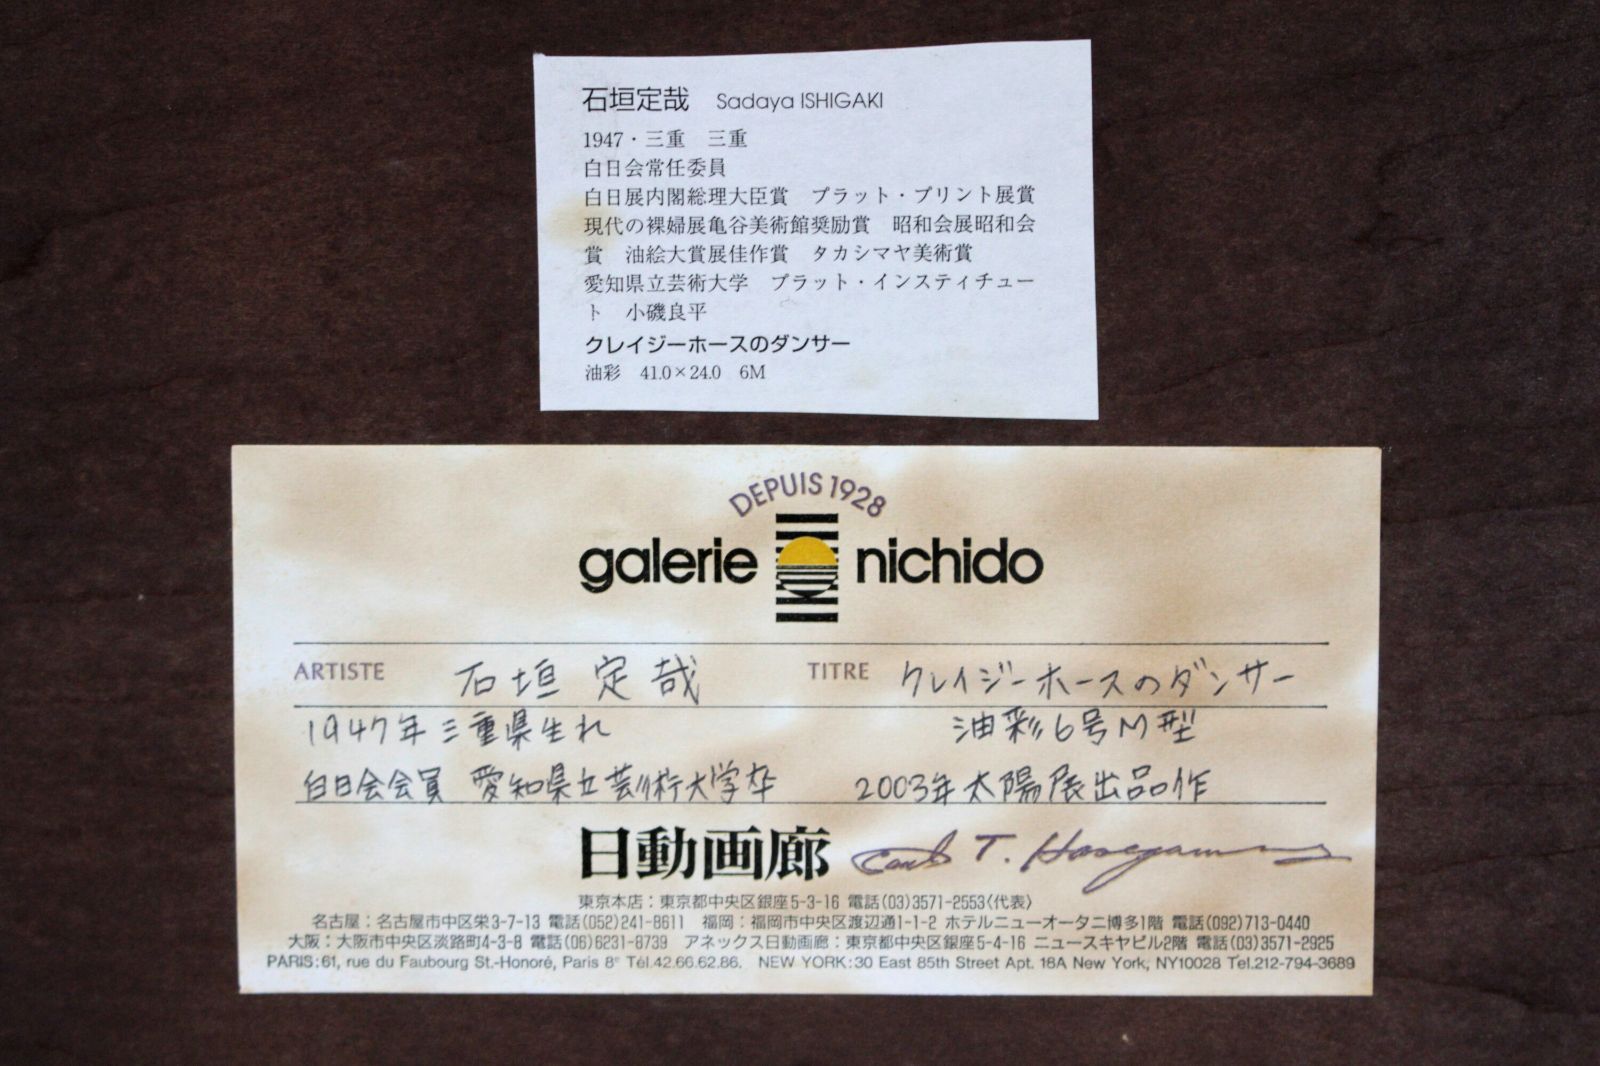 石垣定哉 Sadaya ISHIGAKI
1947・三重 三重
白日会常任委員
白日展内閣総理大臣賞 プラット・プリント展賞
現代の裸婦展亀谷美術館奨励賞 昭和会展昭和会
賞 油絵大賞展佳作賞 タカシマヤ美術賞
愛知県立芸術大学 プラット・インスティチュー
ト 小磯良平
クレイジーホースのダンサー
油彩 41.0×24.0 6M
DEPUIS 1928
galerie nichido
ARTISTE 石垣 定哉 TITRE クレイジーホースのダンサー
1947年三重県生れ 油彩6号M型
白日会会員 愛知県立芸術大学卒 2003年太陽展出品作
日動画廊 T. Hasegawa
東京本店:東京都中央区銀座5-3-16 電話(03)3571-2553〈代表〉
名古屋:名古屋市中区栄3-7-13 電話(052)241-8611 福岡:福岡市中央区渡辺通1-1-2 ホテルニューオータニ博多1階 電話(092)713-0440
大阪:大阪市中央区淡路町4-3-8 電話(06)6231-8739 アネックス日動画廊:東京都中央区銀座5-4-16 ニュースキヤビル2階 電話(03)3571-2925
PARIS:61, rue du Faubourg St.-Honoré, Paris 8e Tél.42.66.62.86. NEW YORK:30 East 85th Street Apt. 18A New York, NY10028 Tel.212-794-3689